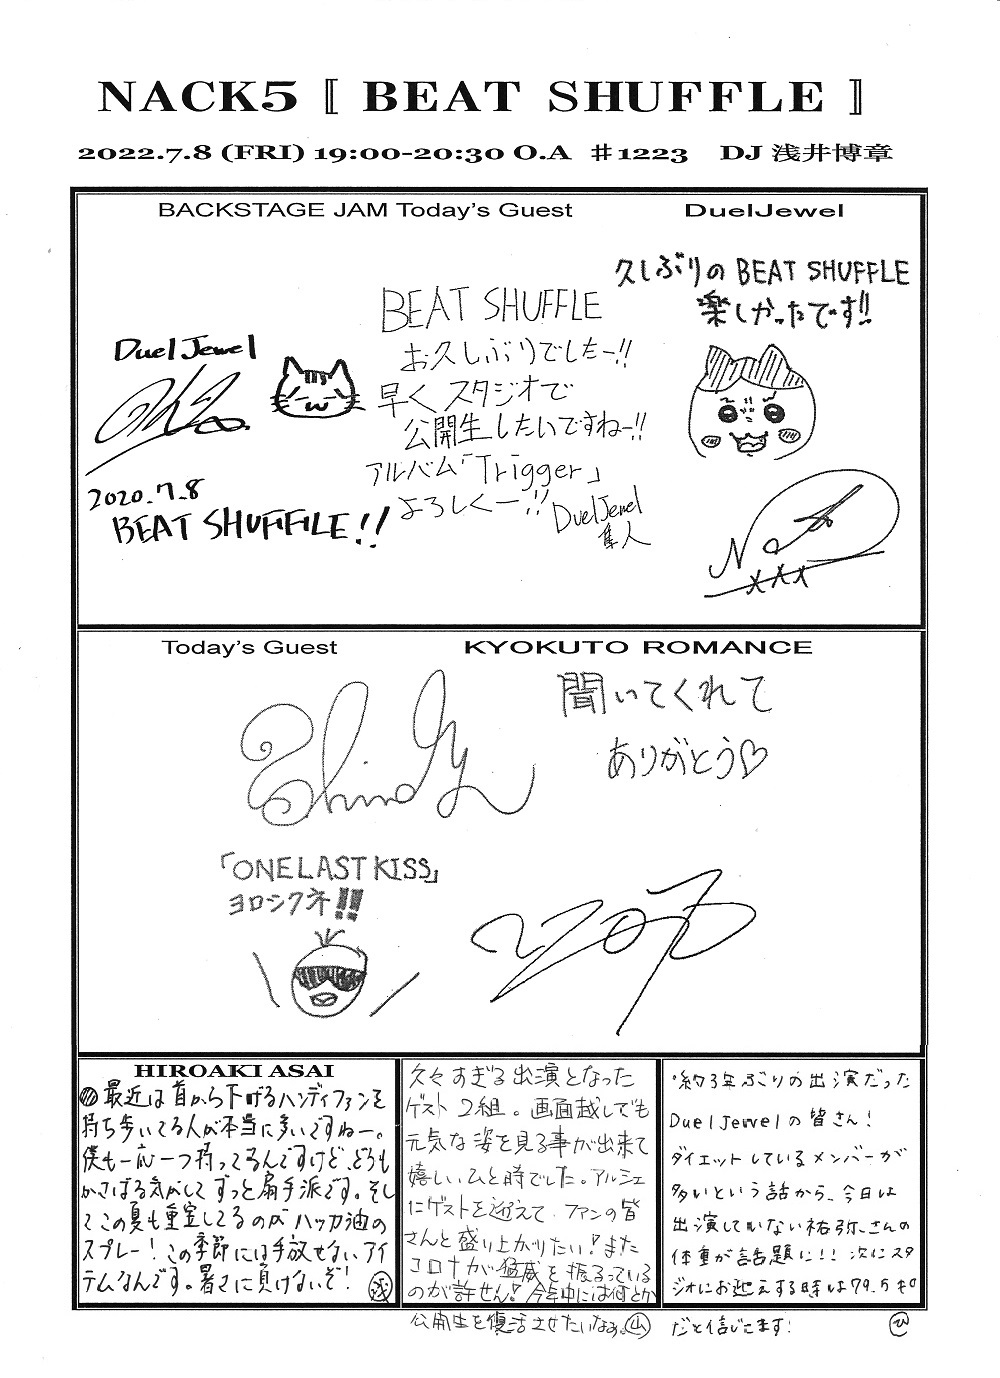 NACK5〚 BEAT SHUFFLE 〛
2022.7.8 (FRI) 19:00-20:30 O.A ♯1223 DJ 浅井博章
BACKSTAGE JAM Today's Guest DuelJewel
久しぶりの BEAT SHUFFLE
楽しかったです!!
BEAT SHUFFLE
お久しぶりでしたー!!
早くスタジオで
公開生したいですねー!!
アルバム「Trigger」
よろしくー!!
DuelJewel
隼人
Duel Jewel
2020.7.8
BEAT SHUFFLE!!
Today's Guest KYOKUTO ROMANCE
聞いてくれて
ありがとう♡
「ONE LAST KISS」
ヨロシクネ!!
HIROAKI ASAI
最近は首から下げるハンディファンを
持ち歩いてる人が本当に多いですねー。
僕も一応一つ持ってるんですけど、どうも
かさばる気がしてずっと扇子派です。そし
てこの夏も重宝してるのがハッカ油の
スプレー!この季節には手放せないアイ
テムなんです。暑さに負けないぞ! 浅
久々すぎる出演となった
ゲスト2組。画面越しでも
元気な姿を見る事が出来て
嬉しいひと時でした。アルシェ
にゲストを迎えて、ファンの皆
さんと盛り上がりたい!また
コロナが猛威を振るっている
のが許せん!今年中には何とか
公開生を復活させたいなぁ。山
約3年ぶりの出演だった
Duel Jewelの皆さん!
ダイエットしているメンバーが
多いという話から、今日は
出演していない祐弥さんの
体重が話題に!!次にスタ
ジオにお迎えする時は79.5キロ
だと信じてます! ひ